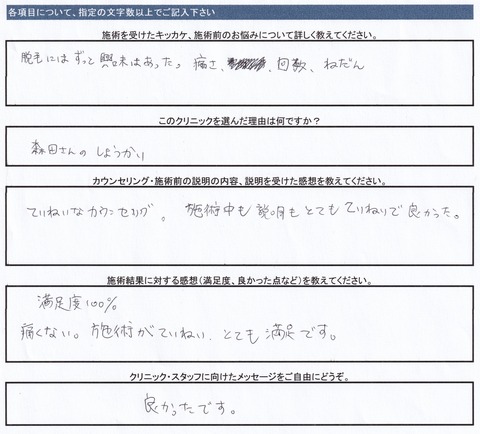 各項目について、指定の文字数以上でご記入下さい
施術を受けたキッカケ、施術前のお悩みについて詳しく教えてください。
脱毛にはずっと興味はあった。痛さ、回数、ねだん
このクリニックを選んだ理由は何ですか？
森田さんのしょうかい
カウンセリング・施術前の説明の内容、説明を受けた感想を教えてください。
ていねいなカウンセリング。施術中も説明もとてもていねいで良かった。
施術結果に対する感想（満足度、良かった点など）を教えてください。
満足度100%
痛くない。施術がていねい、とても満足です。
クリニック・スタッフに向けたメッセージをご自由にどうぞ。
良かったです。